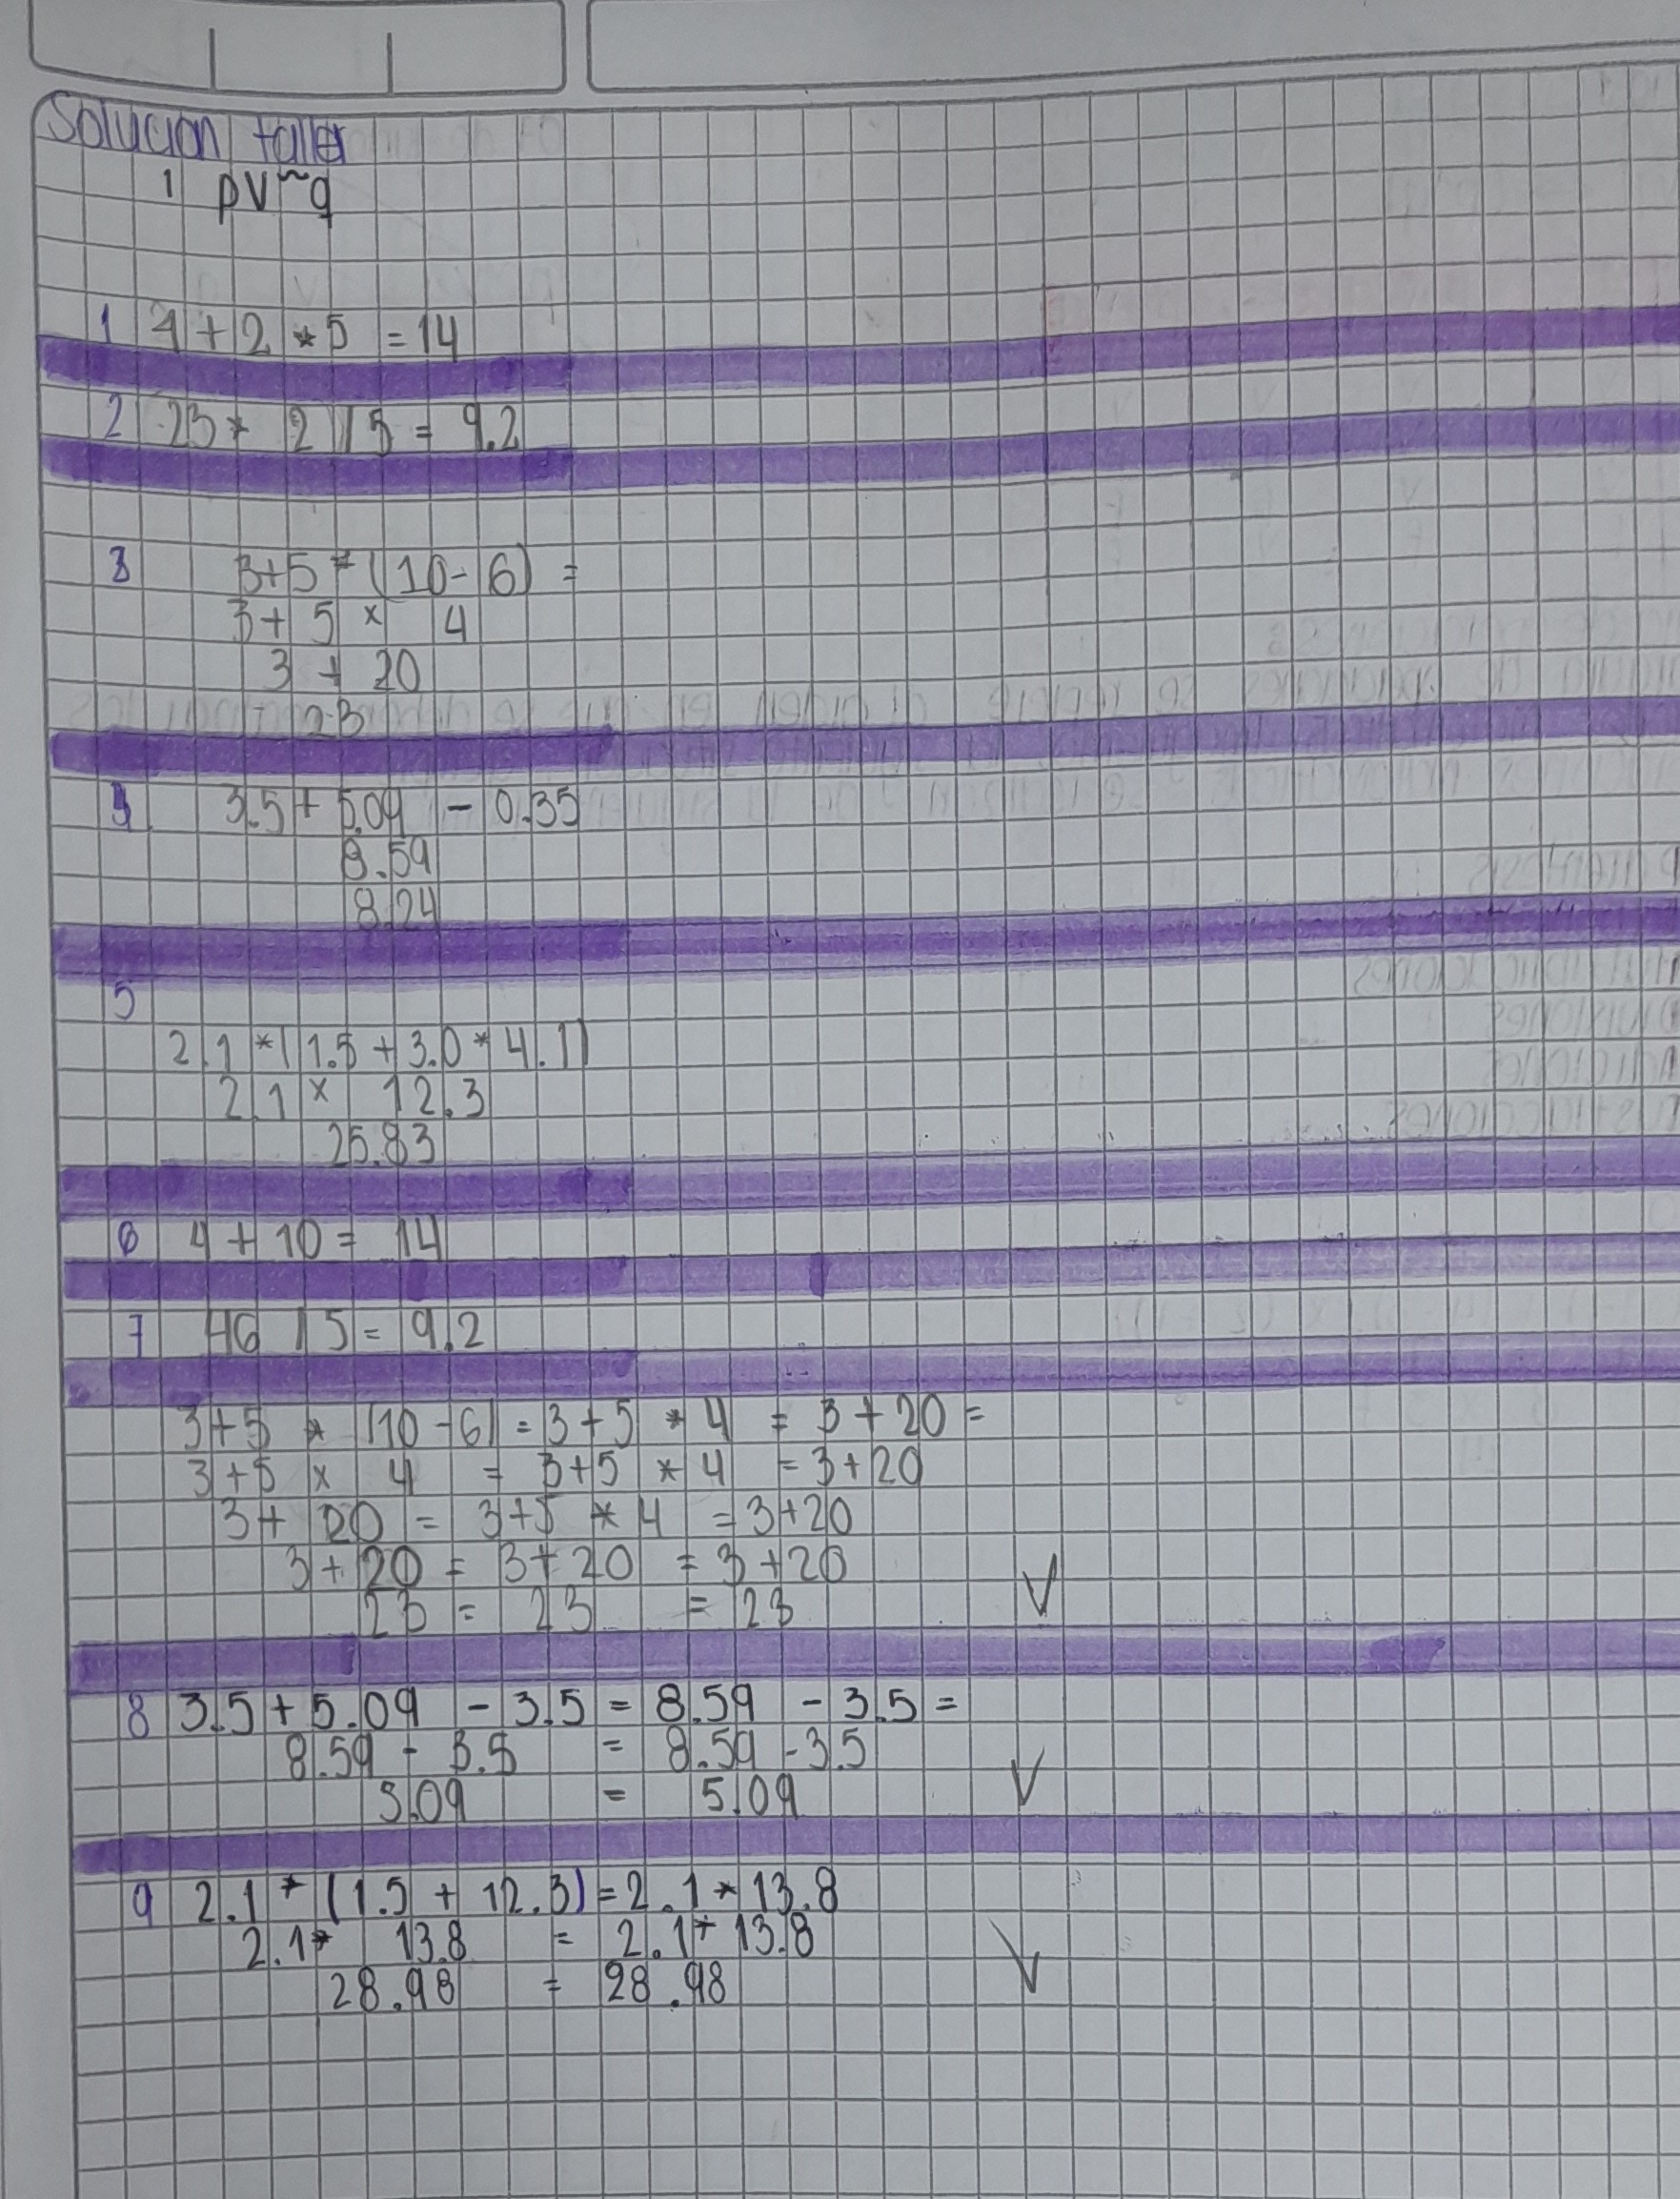 Solucion taller
1 pv~q
1 4+2*5 =14
2 23* 2 /5 = 9.2
3 3+5*(10-6) =
3+ 5 x 4
3 + 20
23
4 3.5+ 5.09 - 0.35
8.59
8.24
5
2.1*(1.5+3.0*4.1)
2.1 x 12.3
25.83
6 4+10= 14
7 46 /5= 9.2
3+5 * (10-6) = 3+5 * 4 = 3+20=
3+5 x 4 = 3+5 * 4 =3+20
3+ 20 = 3+5 * 4 =3+20
3+20 = 3+20 = 3+20 V
23 = 23 = 23
8 3.5+5.09 - 3.5 = 8.59 - 3.5 =
8.59 - 3.5 = 8.59 -3.5 V
5.09 = 5.09
9 2.1 * (1.5 + 12.3)=2.1*13.8
2.1* 13.8 = 2.1* 13.8 V
28.98 = 28.98